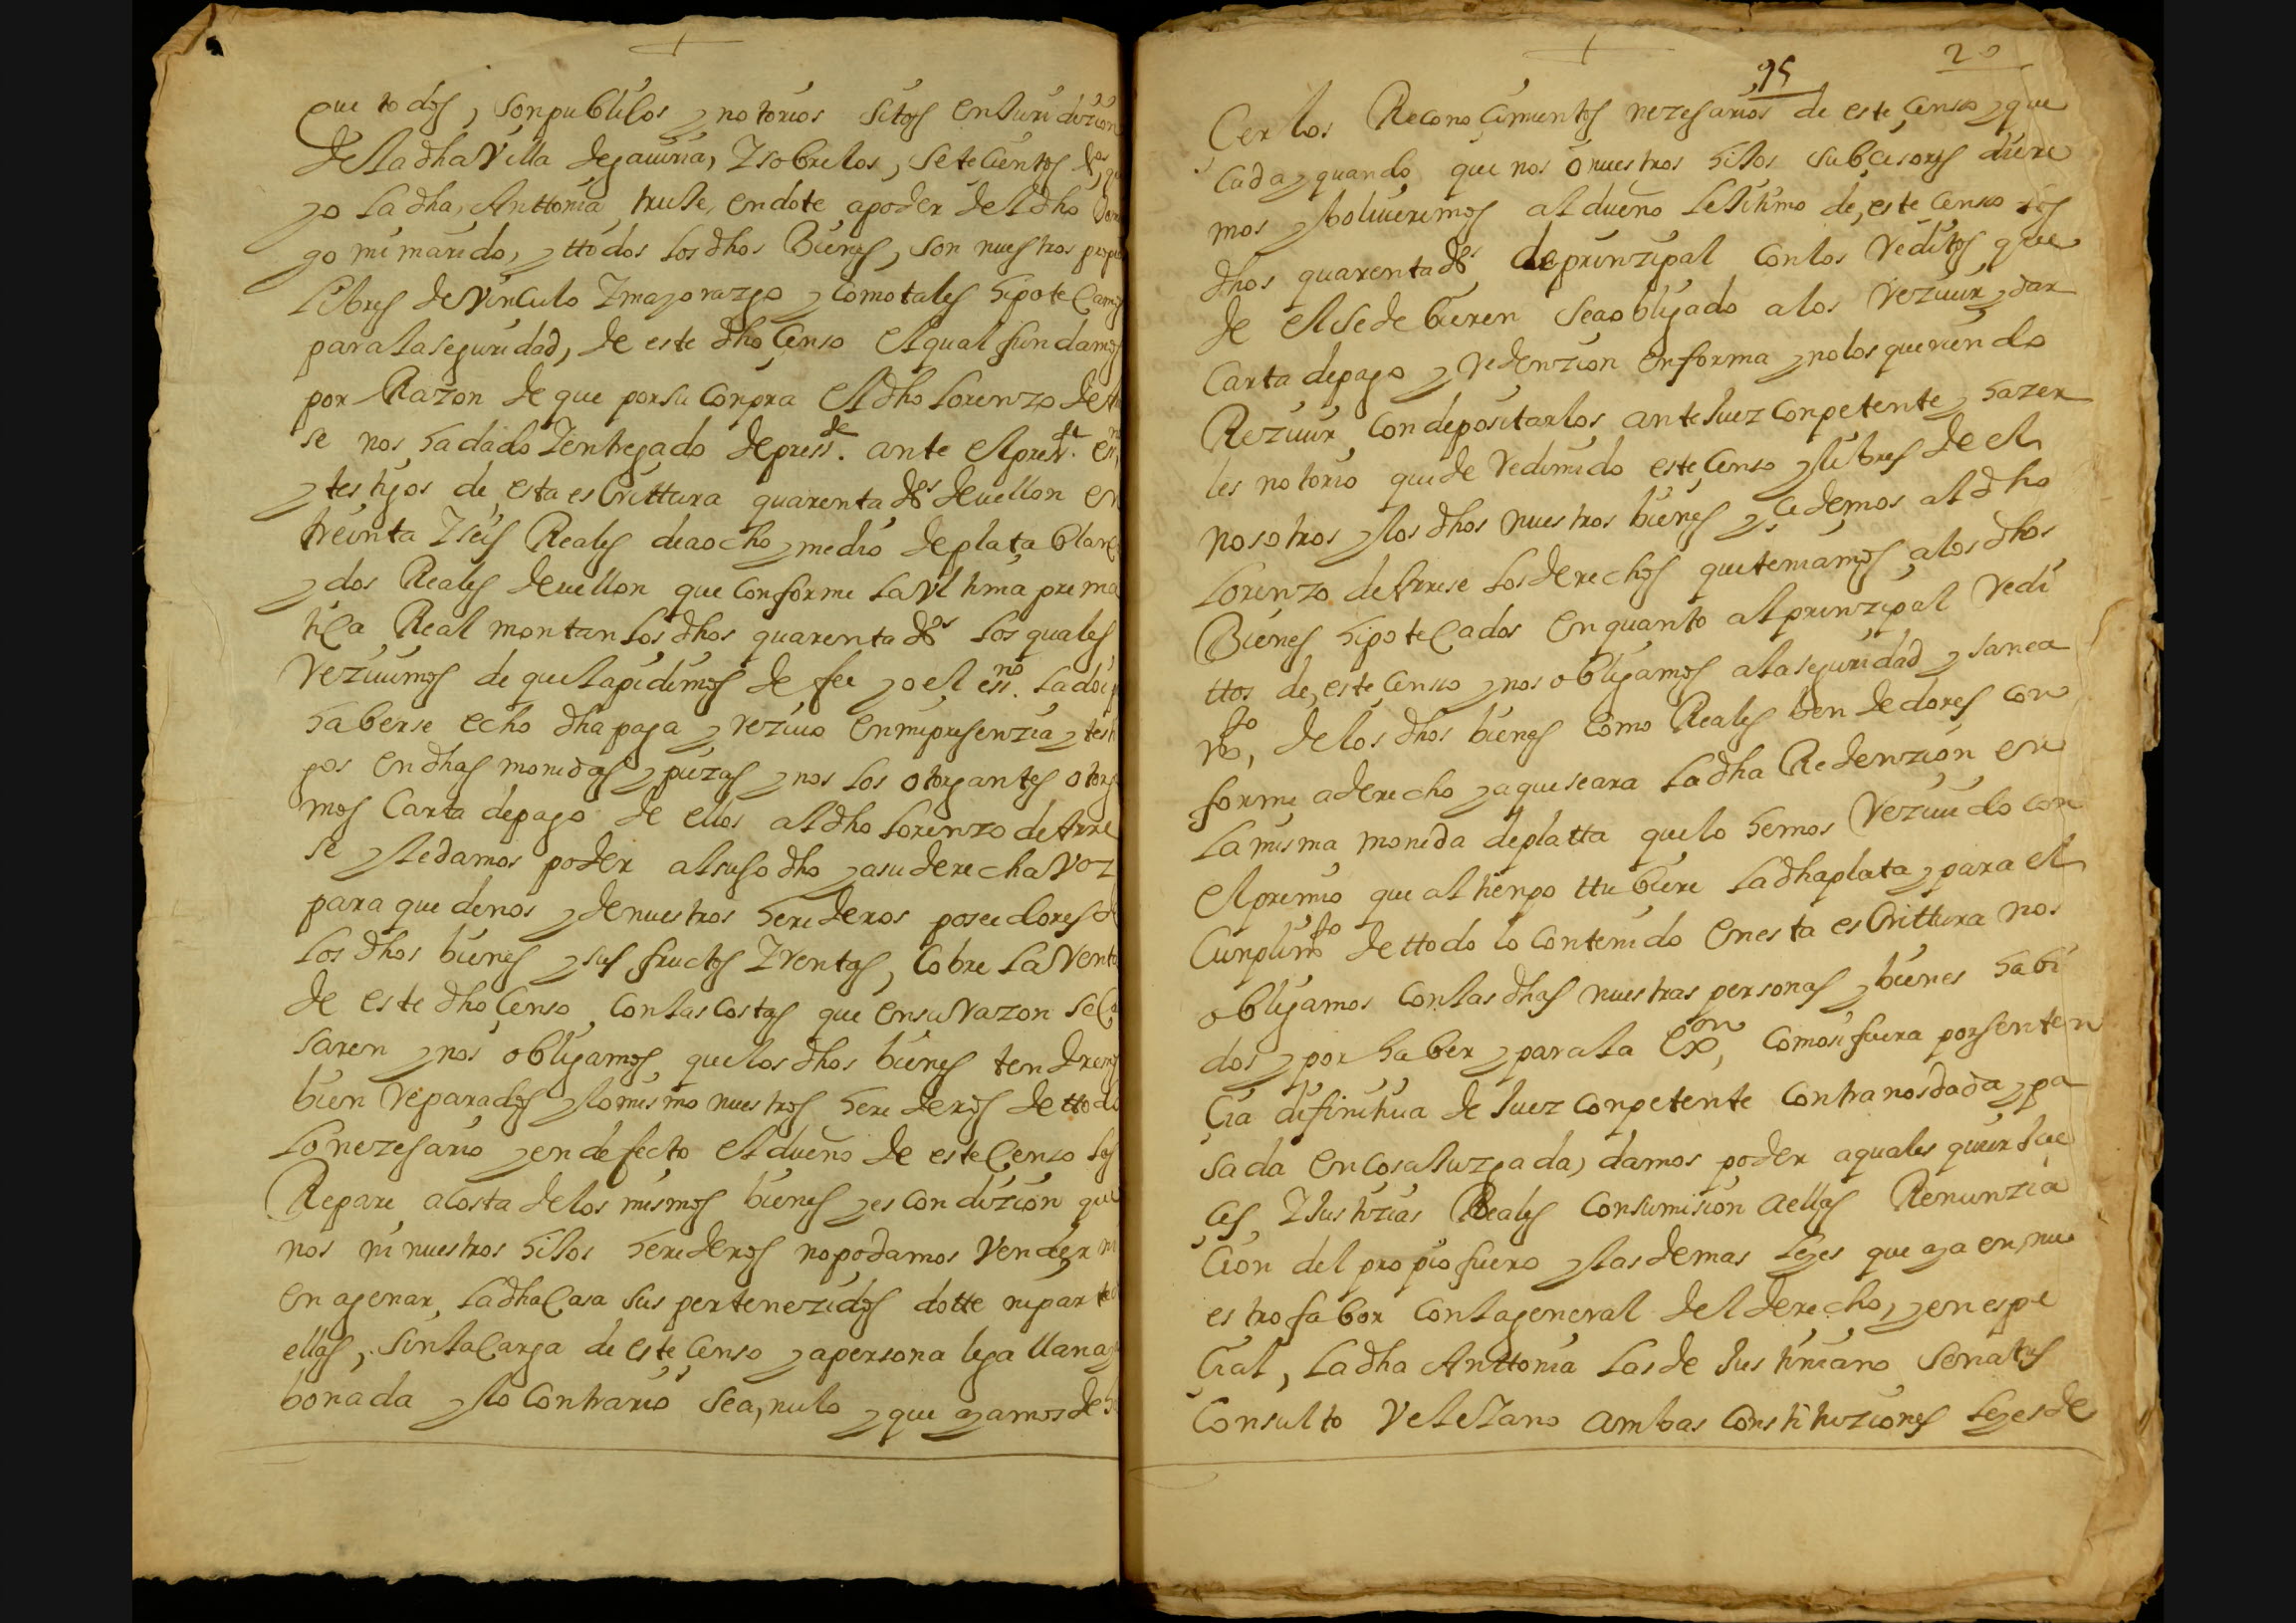 que todos, son publicos y notorios sitos en Juridizion
de la dha Villa de gaviria, Y sobre los, setecientos ds, que
yo La dha, Anttonia truJe, en dote a poder del dho Domin
go mi marido, y ttodos los dhos Bienes, son nuestros propios
Libres de Vinculo Y mayorazgo y como tales hipotecamos
para la seguridad, de este dho Çenso el qual fundamos
por Razon de que por su conpra el dho Lorenzo de Arre
se nos ha dado Y entregado de press.te ante el presste. essno
y testigos de esta escrittura quarenta ds de vellon en
treinta Y seis Reales de a ocho y medio de plata blanca
y dos Reales de vellon que conforme la Vltima prema
tica Real montan los dhos quarenta ds los quales
Rezivimos de que la pidimos de fee yo el essno. la doi
haberse echo dha paga y rezivo en mi presenzia y testi
gos en dhas monedas y piezas y nos los otorgantes otorga
mos carta de pago de ellos al dho Lorenzo de Arre
se y le damos poder al suso dho y a su derecha voz
para que de nos y de nuestros herederos poseedores de
los dhos bienes y sus fructos Y rentas, cobre la renta
de este dho Çenso, con las costas que en su razon se ca
saren y nos obligamos que los dhos bienes tendremos
bien reparados y lo mismo nuestros herederos de ttodo
lo nezesario y en defecto el dueño de este Çenso los
Repare a costa de los mismos bienes y es condizion que
nos ni nuestros hiJos herederos no podamos vender ni
enagenar, la dha Casa sus pertenezidos dotte ni parte
ellas, sin la carga de este Çenso y a persona lega llana
bonada y lo contrario sea, nulo y que ayamos de
95 20
Cer los Reconocimientos nezesarios de este Çenso y que
cada y quando que nos o nuestros hiJos subcesores diere
mos y bolvieremos al dueño LeJitimo de, este Censo los
dhos quarenta ds de prinzipal con los reditos que
de el se debieren sea obligado a los rezivir y dar
Carta de pago y redenzion en forma y no los queriendo
Rezivir, con depositarlos ante Juez conpetente y hazer
les notorio quede redimido este Çenso y libres de el
nosotros y los dhos nuestros bienes y cedemos al dho
Lorenzo de Arrese los derechos que teniamos a los dhos
Bienes hipotecados en quanto al prinzipal redi
ttos de, este Censo y nos obligamos a la seguridad y sanea
mto, de los dhos bienes como Reales bendedores con
forme a derecho y a que se ara la dha Redenzion en
la misma moneda de platta que lo hemos rezivido con
el premio que al tienpo ttubiere la dha plata y para el
cunplimto de ttodo lo contenido en esta escrittura nos
obligamos con las dhas nuestras personas y bienes habi
dos y por haber y para la exon, como si fuera por senten
Çia difinitiva de Juez conpetente contra nos dada y pa
sada en cosa Juzgada, damos poder a quales quier Jue
ces, Y Justizias Reales con sumision a ellas Renunzia
Çion del propio fuero y las demas leyes que aya en, nu
estro fabor con la general del derecho, y en espe
Çial, la dha Anttonia las de Justiniano senatus
Consulto VeleJano ambas constituziones leyes de